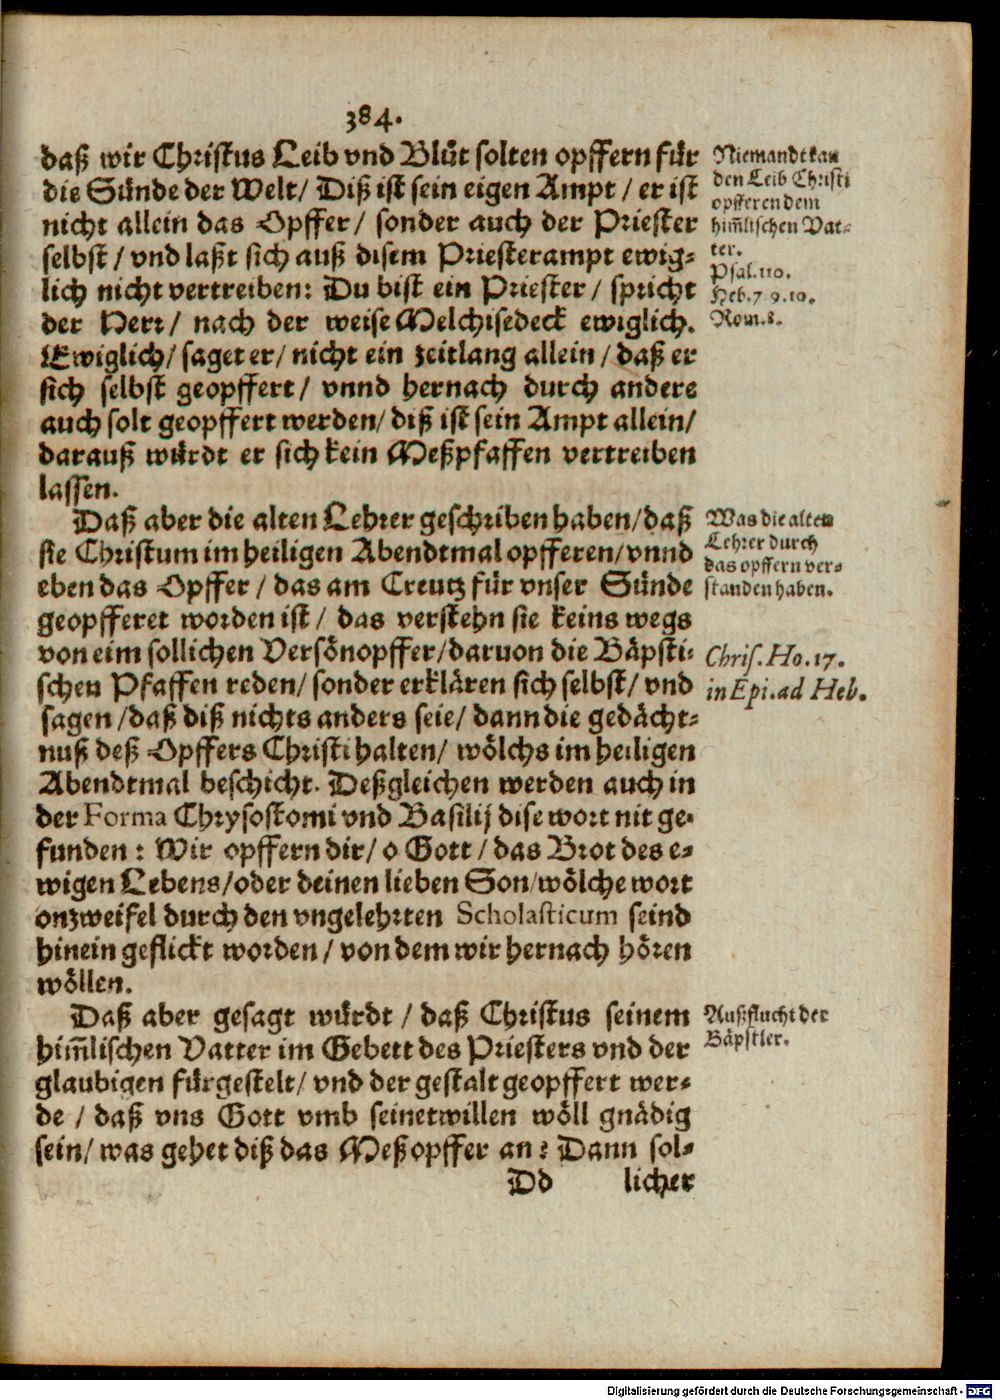 384.
daß wir Christus Leib vnd Blůt solten opffern für
die Sünde der Welt/ Diß ist sein eigen Ampt / er ist
nicht allein das Opffer/ sonder auch der Priester
selbst / vnd laßt sich auß disem Priesterampt ewig-
lich nicht vertreiben: Du bist ein Priester / spricht
der Herr/ nach der weise Melchisedeck ewiglich.
Ewiglich/ saget er/ nicht ein zeitlang allein / daß er
sich selbst geopffert/ vnnd hernach durch andere
auch solt geopffert werden/ diß ist sein Ampt allein/
darauß würdt er sich kein Meßpfaffen vertreiben
lassen.
Niemandt kan
den Leib Christi
opfferen dem
him̃lischen Vat-
ter.
Psal. 110.
Heb. 7. 9. 10.
Rom. 8.
Daß aber die alten Lehrer geschriben haben/daß
sie Christum im heiligen Abendtmal opfferen/vnnd
eben das Opffer / das am Creutz für vnser Sünde
geopfferet worden ist / das verstehn sie keins wegs
von eim sollichen Versönopffer/daruon die Bäpsti-
schen Pfaffen reden/ sonder erklären sich selbst/ vnd
sagen /daß diß nichts anders seie/ dann die gedächt-
nuß deß Opffers Christi halten/ wölchs im heiligen
Abendtmal beschicht. Deßgleichen werden auch in
der Forma Chrysostomi vnd Basilij dise wort nit ge-
funden : Wir opffern dir/ o Gott / das Brot des e-
wigen Lebens/oder deinen lieben Son/wölche wort
onzweifel durch den vngelehrten Scholasticum seind
hinein geflickt worden / von dem wir hernach hören
wöllen.
Was die alten
Lehrer durch
das opffern ver-
standen haben.
Chris. Ho. 17.
in Epi. ad Heb.
Daß aber gesagt würdt / daß Christus seinem
him̃lischen Vatter im Gebett des Priesters vnd der
glaubigen fürgestelt/ vnd der gestalt geopffert wer-
de / daß vns Gott vmb seinetwillen wöll gnädig
sein/ was gehet diß das Meßopffer an? Dann sol-
Außflucht der
Bäpstler.
Dd licher
Digitalisierung gefördert durch die Deutsche Forschungsgemeinschaft - DFG